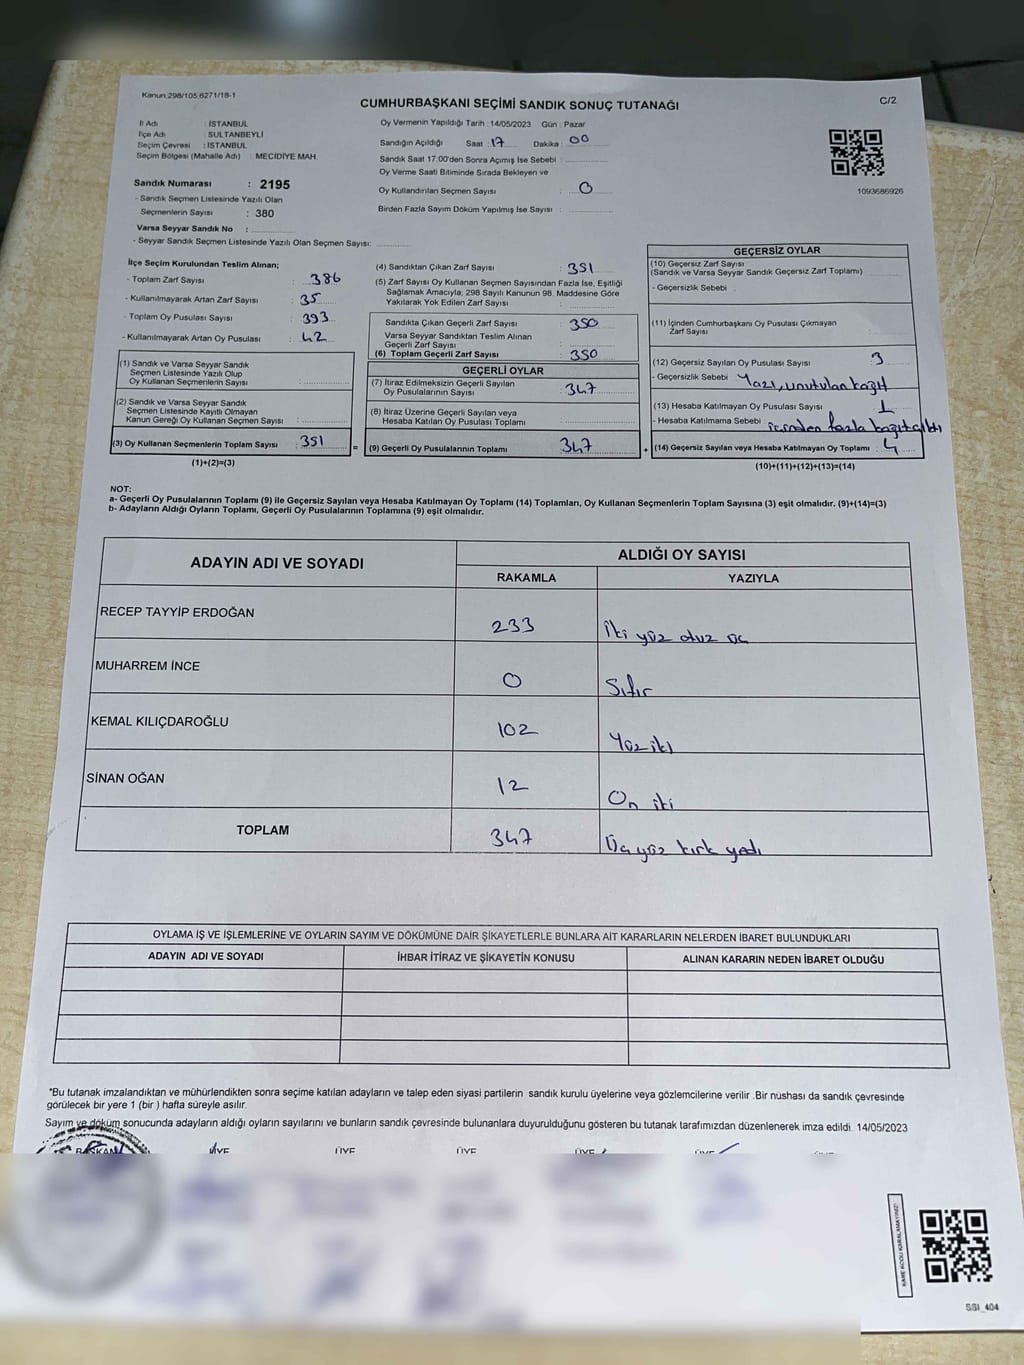 Kanun:298/105,6271/18-1
CUMHURBAŞKANI SEÇİMİ SANDIK SONUÇ TUTANAĞI
C/2
İl Adı : İSTANBUL
İlçe Adı : SULTANBEYLİ
Seçim Çevresi : İSTANBUL
Seçim Bölgesi (Mahalle Adı) : MECİDİYE MAH.
Sandık Numarası : 2195
- Sandık Seçmen Listesinde Yazılı Olan
Seçmenlerin Sayısı : 380
Varsa Seyyar Sandık No :
- Seyyar Sandık Seçmen Listesinde Yazılı Olan Seçmen Sayısı:
Oy Vermenin Yapıldığı Tarih : 14/05/2023 Gün : Pazar
Sandığın Açıldığı Saat : 17 Dakika : 00
Sandık Saat 17.00'den Sonra Açımış İse Sebebi :
Oy Verme Saati Bitiminde Sırada Bekleyen ve
Oy Kullandırılan Seçmen Sayısı : 0
Birden Fazla Sayım Döküm Yapılmış İse Sayısı :
1093686926
İlçe Seçim Kurulundan Teslim Alınan;
- Toplam Zarf Sayısı : 386
- Kullanılmayarak Artan Zarf Sayısı : 35
- Toplam Oy Pusulası Sayısı : 393
- Kullanılmayarak Artan Oy Pusulası : 42
(1) Sandık ve Varsa Seyyar Sandık
Seçmen Listesinde Yazılı Olup
Oy Kullanan Seçmenlerin Sayısı :
(2) Sandık ve Varsa Seyyar Sandık
Seçmen Listesinde Kayıtlı Olmayan
Kanun Gereği Oy Kullanan Seçmen Sayısı :
(3) Oy Kullanan Seçmenlerin Toplam Sayısı : 351 =
(1)+(2)=(3)
(4) Sandıktan Çıkan Zarf Sayısı : 351
(5) Zarf Sayısı Oy Kullanan Seçmen Sayısından Fazla İse, Eşitliği
Sağlamak Amacıyla; 298 Sayılı Kanunun 98. Maddesine Göre
Yakılarak Yok Edilen Zarf Sayısı :
Sandıkta Çıkan Geçerli Zarf Sayısı : 350
Varsa Seyyar Sandıktan Teslim Alınan
Geçerli Zarf Sayısı :
(6) Toplam Geçerli Zarf Sayısı : 350
GEÇERLİ OYLAR
(7) İtiraz Edilmeksizin Geçerli Sayılan
Oy Pusulalarının Sayısı : 347
(8) İtiraz Üzerine Geçerli Sayılan veya
Hesaba Katılan Oy Pusulası Toplamı :
(9) Geçerli Oy Pusulalarının Toplamı : 347 +
GEÇERSİZ OYLAR
(10) Geçersiz Zarf Sayısı
(Sandık ve Varsa Seyyar Sandık Geçersiz Zarf Toplamı) :
- Geçersizlik Sebebi :
(11) İçinden Cumhurbaşkanı Oy Pusulası Çıkmayan
Zarf Sayısı :
(12) Geçersiz Sayılan Oy Pusulası Sayısı : 3
- Geçersizlik Sebebi : Yazı, unutulan kağıt
(13) Hesaba Katılmayan Oy Pusulası Sayısı : 1
- Hesaba Katılmama Sebebi : içinden fazla kağıt çıktı
(14) Geçersiz Sayılan veya Hesaba Katılmayan Oy Toplamı : 4
(10)+(11)+(12)+(13)=(14)
NOT:
a- Geçerli Oy Pusulalarının Toplamı (9) ile Geçersiz Sayılan veya Hesaba Katılmayan Oy Toplamı (14) Toplamları, Oy Kullanan Seçmenlerin Toplam Sayısına (3) eşit olmalıdır. (9)+(14)=(3)
b- Adayların Aldığı Oyların Toplamı, Geçerli Oy Pusulalarının Toplamına (9) eşit olmalıdır.
ADAYIN ADI VE SOYADI
ALDIĞI OY SAYISI
RAKAMLA YAZIYLA
RECEP TAYYİP ERDOĞAN 233 İki yüz otuz üç
MUHARREM İNCE 0 Sıfır
KEMAL KILIÇDAROĞLU 102 Yüz iki
SİNAN OĞAN 12 On iki
TOPLAM 347 Üç yüz kırk yedi
OYLAMA İŞ VE İŞLEMLERİNE VE OYLARIN SAYIM VE DÖKÜMÜNE DAİR ŞİKAYETLERLE BUNLARA AİT KARARLARIN NELERDEN İBARET BULUNDUKLARI
ADAYIN ADI VE SOYADI İHBAR İTİRAZ VE ŞİKAYETİN KONUSU ALINAN KARARIN NEDEN İBARET OLDUĞU
*Bu tutanak imzalandıktan ve mühürlendikten sonra seçime katılan adayların ve talep eden siyasi partilerin sandık kurulu üyelerine veya gözlemcilerine verilir .Bir nüshası da sandık çevresinde
görülecek bir yere 1 (bir ) hafta süreyle asılır.
Sayım ve döküm sonucunda adayların aldığı oyların sayılarını ve bunların sandık çevresinde bulunanlara duyurulduğunu gösteren bu tutanak tarafımızdan düzenlenerek imza edildi. 14/05/2023
BAŞKAN ÜYE ÜYE ÜYE ÜYE ÜYE
KARE KODU KARALAMAYINIZ!
SSI_404